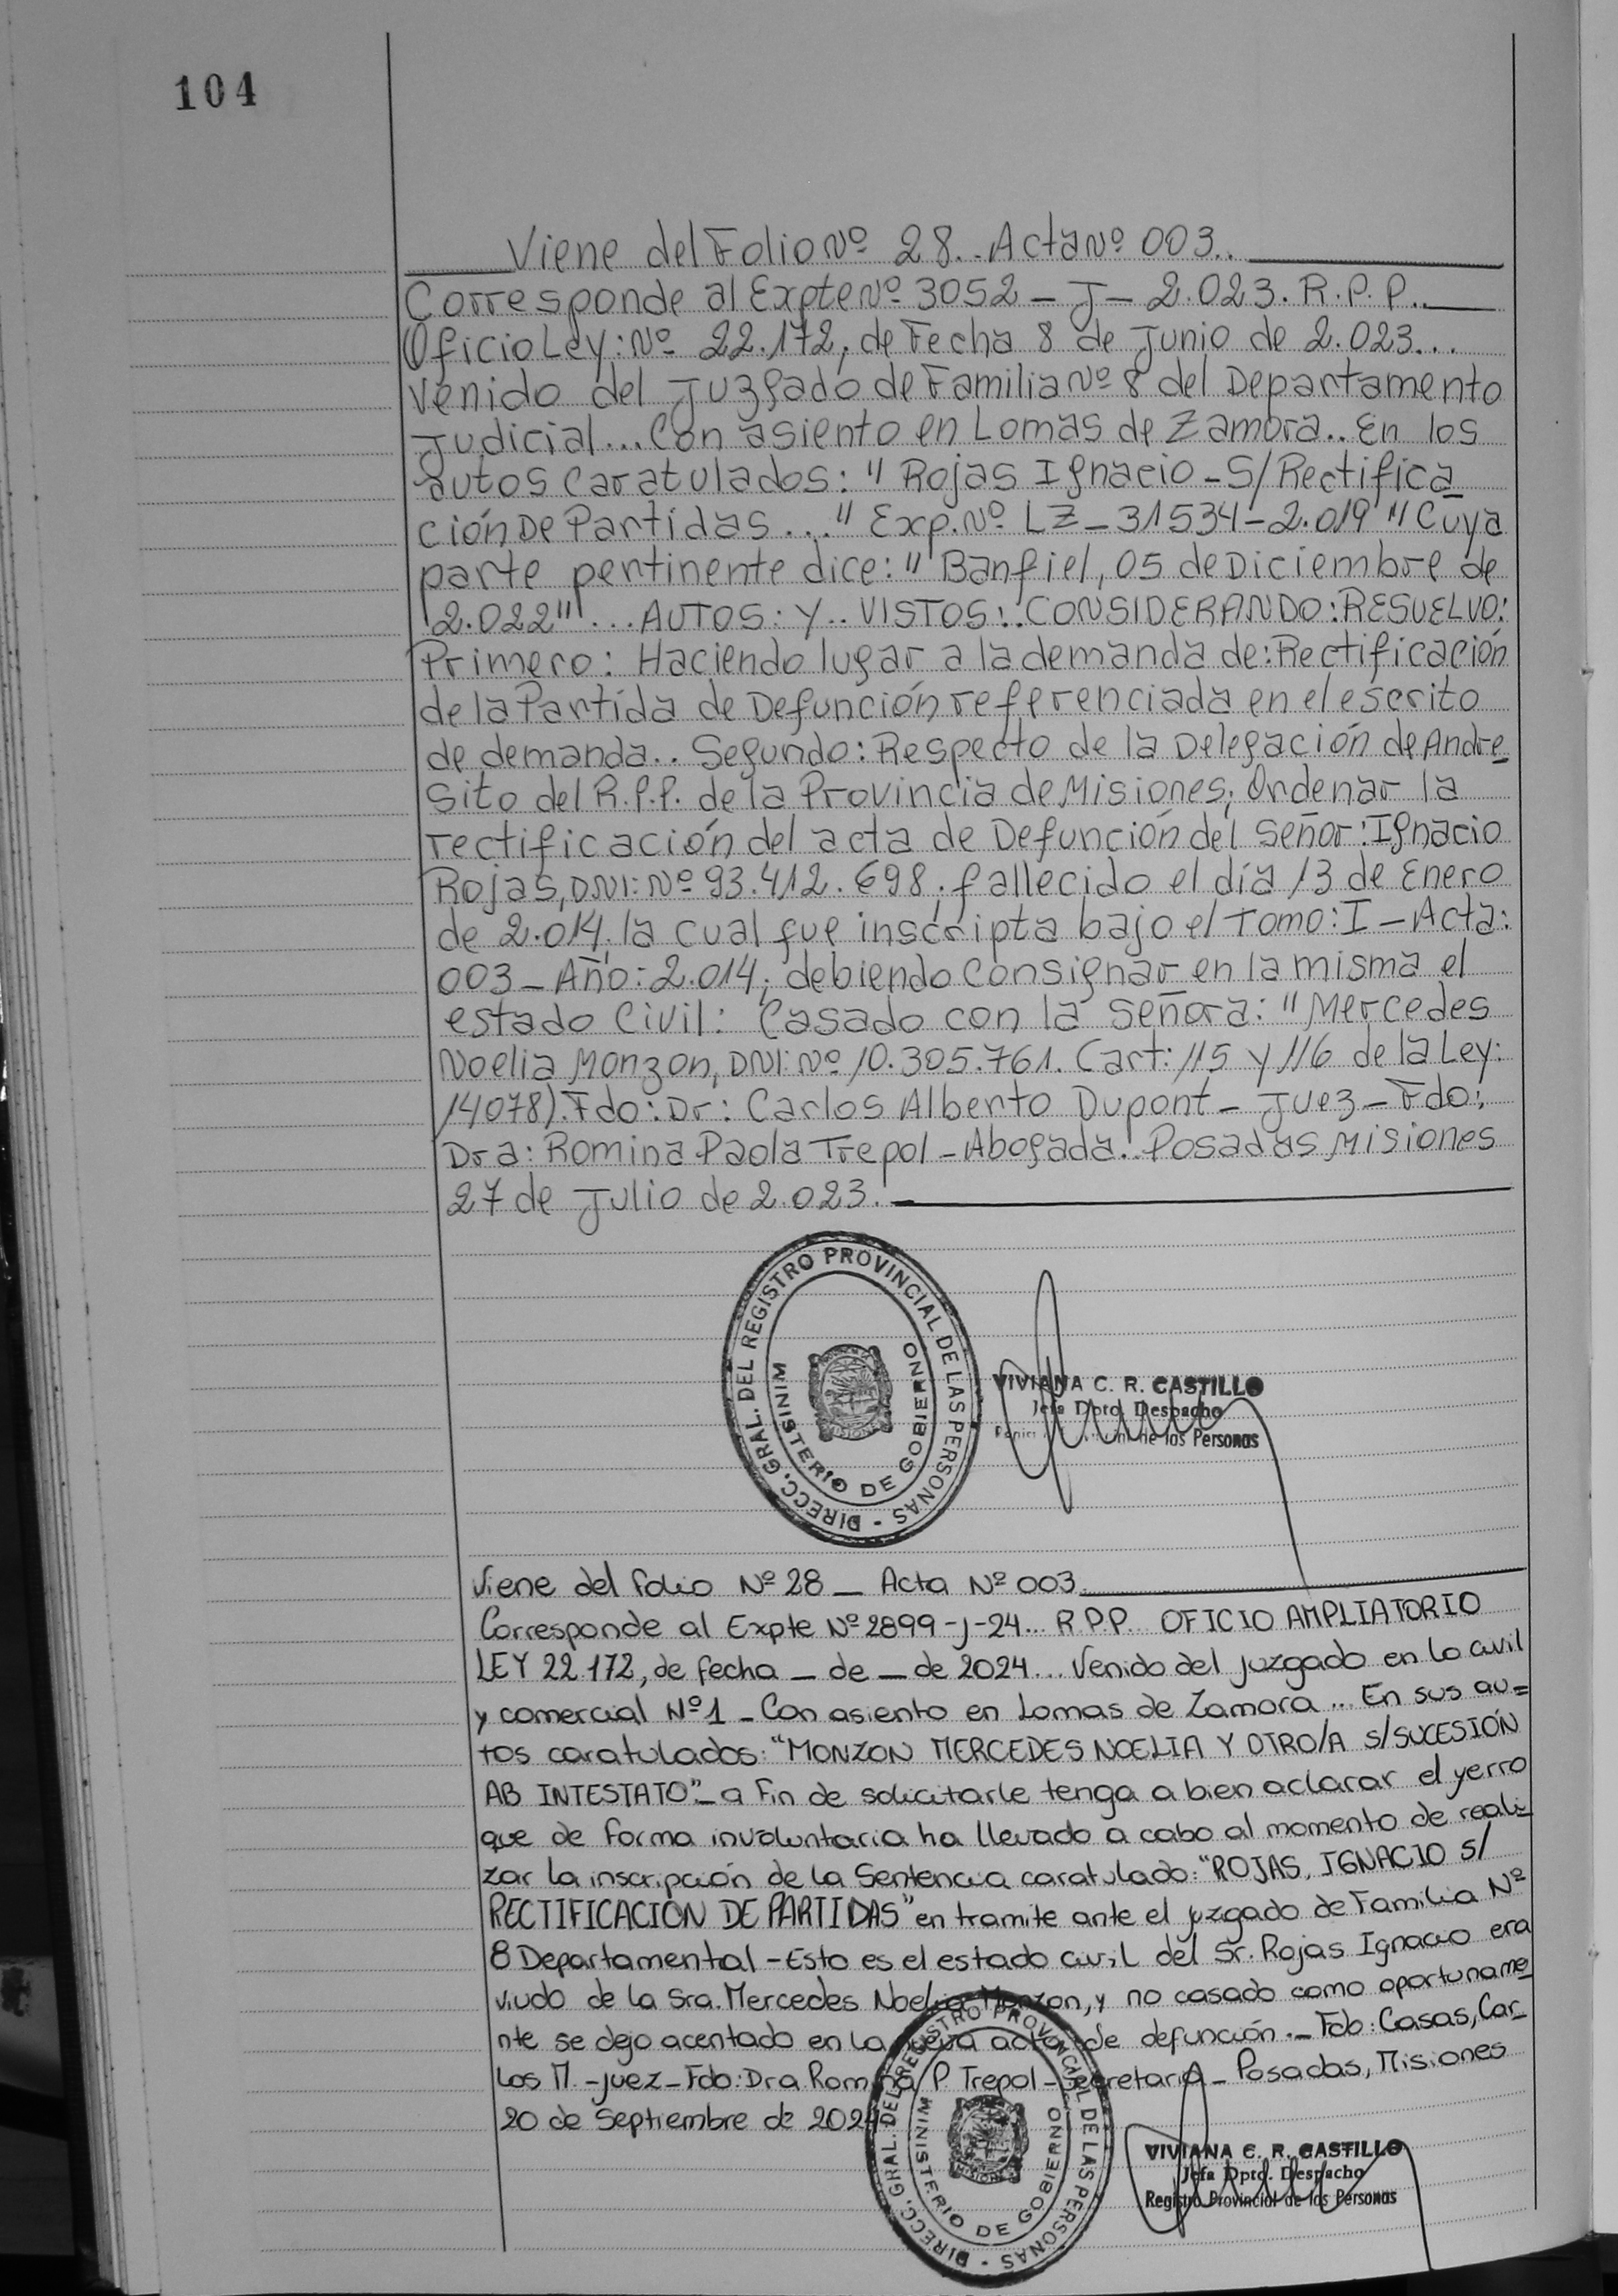 104
Viene del Folio Nº 28.. Acta Nº 003..
Corresponde al Expte Nº 3052 - J - 2.023. R.P.P..
Oficio Ley: Nº 22.172, de Fecha 8 de Junio de 2.023...
Venido del Juzgado de Familia Nº 8 del Departamento
Judicial... Con asiento en Lomas de Zamora.. En los
autos Caratulados: " Rojas Ignacio - S/ Rectifica
ción De Partidas..." Exp. Nº LZ - 31534 - 2.019 " Cuya
parte pertinente dice: " Banfiel, 05 de Diciembre de
2.022"... AUTOS: Y.. VISTOS:. CONSIDERANDO: RESUELVO:
Primero: Haciendo lugar a la demanda de: Rectificación
de la Partida de Defunción referenciada en el escrito
de demanda.. Segundo: Respecto de la Delegación de Andre
sito del R.P.P. de la Provincia de Misiones; Ordenar la
rectificación del acta de Defunción del Señor: Ignacio
Rojas, DNI: Nº 93.412.698, fallecido el día 13 de Enero
de 2.014, la cual fue inscripta bajo el Tomo: I - Acta:
003 - Año: 2.014; debiendo Consignar en la misma el
estado Civil: Casado con la Señora: "Mercedes
Noelia Monzon, DNI: Nº 10.305.761. Cart: 115 y 116 de la Ley:
14078). Fdo: Dr: Carlos Alberto Dupont - Juez - Fdo:
Dra: Romina Paola Trepol - Abogada.. Posadas Misiones
27 de Julio de 2.023.-
DIRECC. GRAL. DEL REGISTRO PROVINCIAL DE LAS PERSONAS -
MINISTERIO DE GOBIERNO
VIVIANA C. R. CASTILLO
Jefa Dpto. Despacho
de las Personas
Viene del folio Nº 28 - Acta Nº 003
Corresponde al Expte Nº 2899 - J - 24... R.P.P. OFICIO AMPLIATORIO
LEY 22.172, de fecha _ de _ de 2024... Venido del juzgado en lo civil
y comercial Nº 1 - Con asiento en Lomas de Zamora... En sus au=
tos caratulados: "MONZON MERCEDES NOELIA Y OTRO/A S/SUCESIÓN
AB INTESTATO" - a fin de solicitarle tenga a bien aclarar el yerro
que de forma involuntaria ha llevado a cabo al momento de reali-
zar la inscripción de la Sentencia caratulado: "ROJAS, IGNACIO S/
RECTIFICACION DE PARTIDAS" en tramite ante el juzgado de Familia Nº
8 Departamental - Esto es el estado civil del Sr. Rojas Ignacio era
viudo de la Sra. Mercedes Noelia Monzon, y no casado como oportuname
nte se dejo acentado en la nueva acta de defunción.- Fdo: Casas, Car_
los M. - juez - Fdo: Dra Romina P Trepol - Secretaria - Posadas, Misiones
20 de Septiembre de 2024
DIRECC. GRAL. DEL REGISTRO PROVINCIAL DE LAS PERSONAS -
MINISTERIO DE GOBIERNO
VIVIANA C. R. CASTILLO
Jefa Dpto. Despacho
Registro Provincial de las Personas